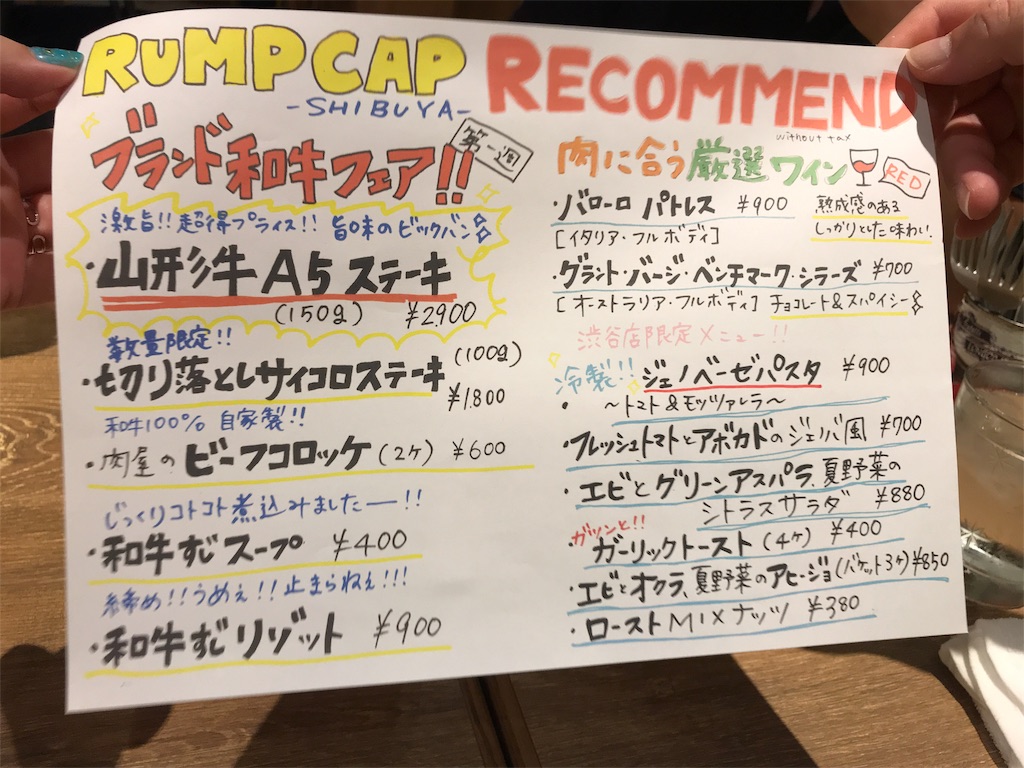 RUMP CAP
-SHIBUYA-
RECOMMEND
without tax
ブランド和牛フェア!!
第一週
激旨!!超得プライス!! 旨味のビックバン
・山形牛A5ステーキ
(150g) ¥2,900
数量限定!!
・切り落としサイコロステーキ (100g)
¥1,800
和牛100% 自家製!!
・肉屋のビーフコロッケ(2ケ) ¥600
じっくりコトコト煮込みましたー!!
・和牛すじスープ ¥400
締め!!うめぇ!!止まらねぇ!!!
・和牛すじリゾット ¥900
肉に合う厳選ワイン
RED
・バローロ パトレス ¥900
[イタリア・フルボディ]
熟成感のある
しっかりとした味わい.
・グラント・バージ・ベンチマーク・シラーズ ¥700
[オーストラリア・フルボディ] チョコレート&スパイシー
渋谷店限定メニュー!!
・冷製!!ジェノベーゼパスタ ¥900
〜トマト&モッツァレラ〜
・フレッシュトマトとアボカドのジェノバ風 ¥700
・エビとグリーンアスパラ、夏野菜の
シトラスサラダ ¥880
ガツンと!!
・ガーリックトースト(4ケ) ¥400
・エビとオクラ、夏野菜のアヒージョ(バケット3ケ)¥850
・ローストMIXナッツ ¥380